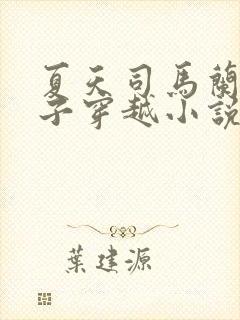 夏天司馬蘭
子穿越小說
葉建源